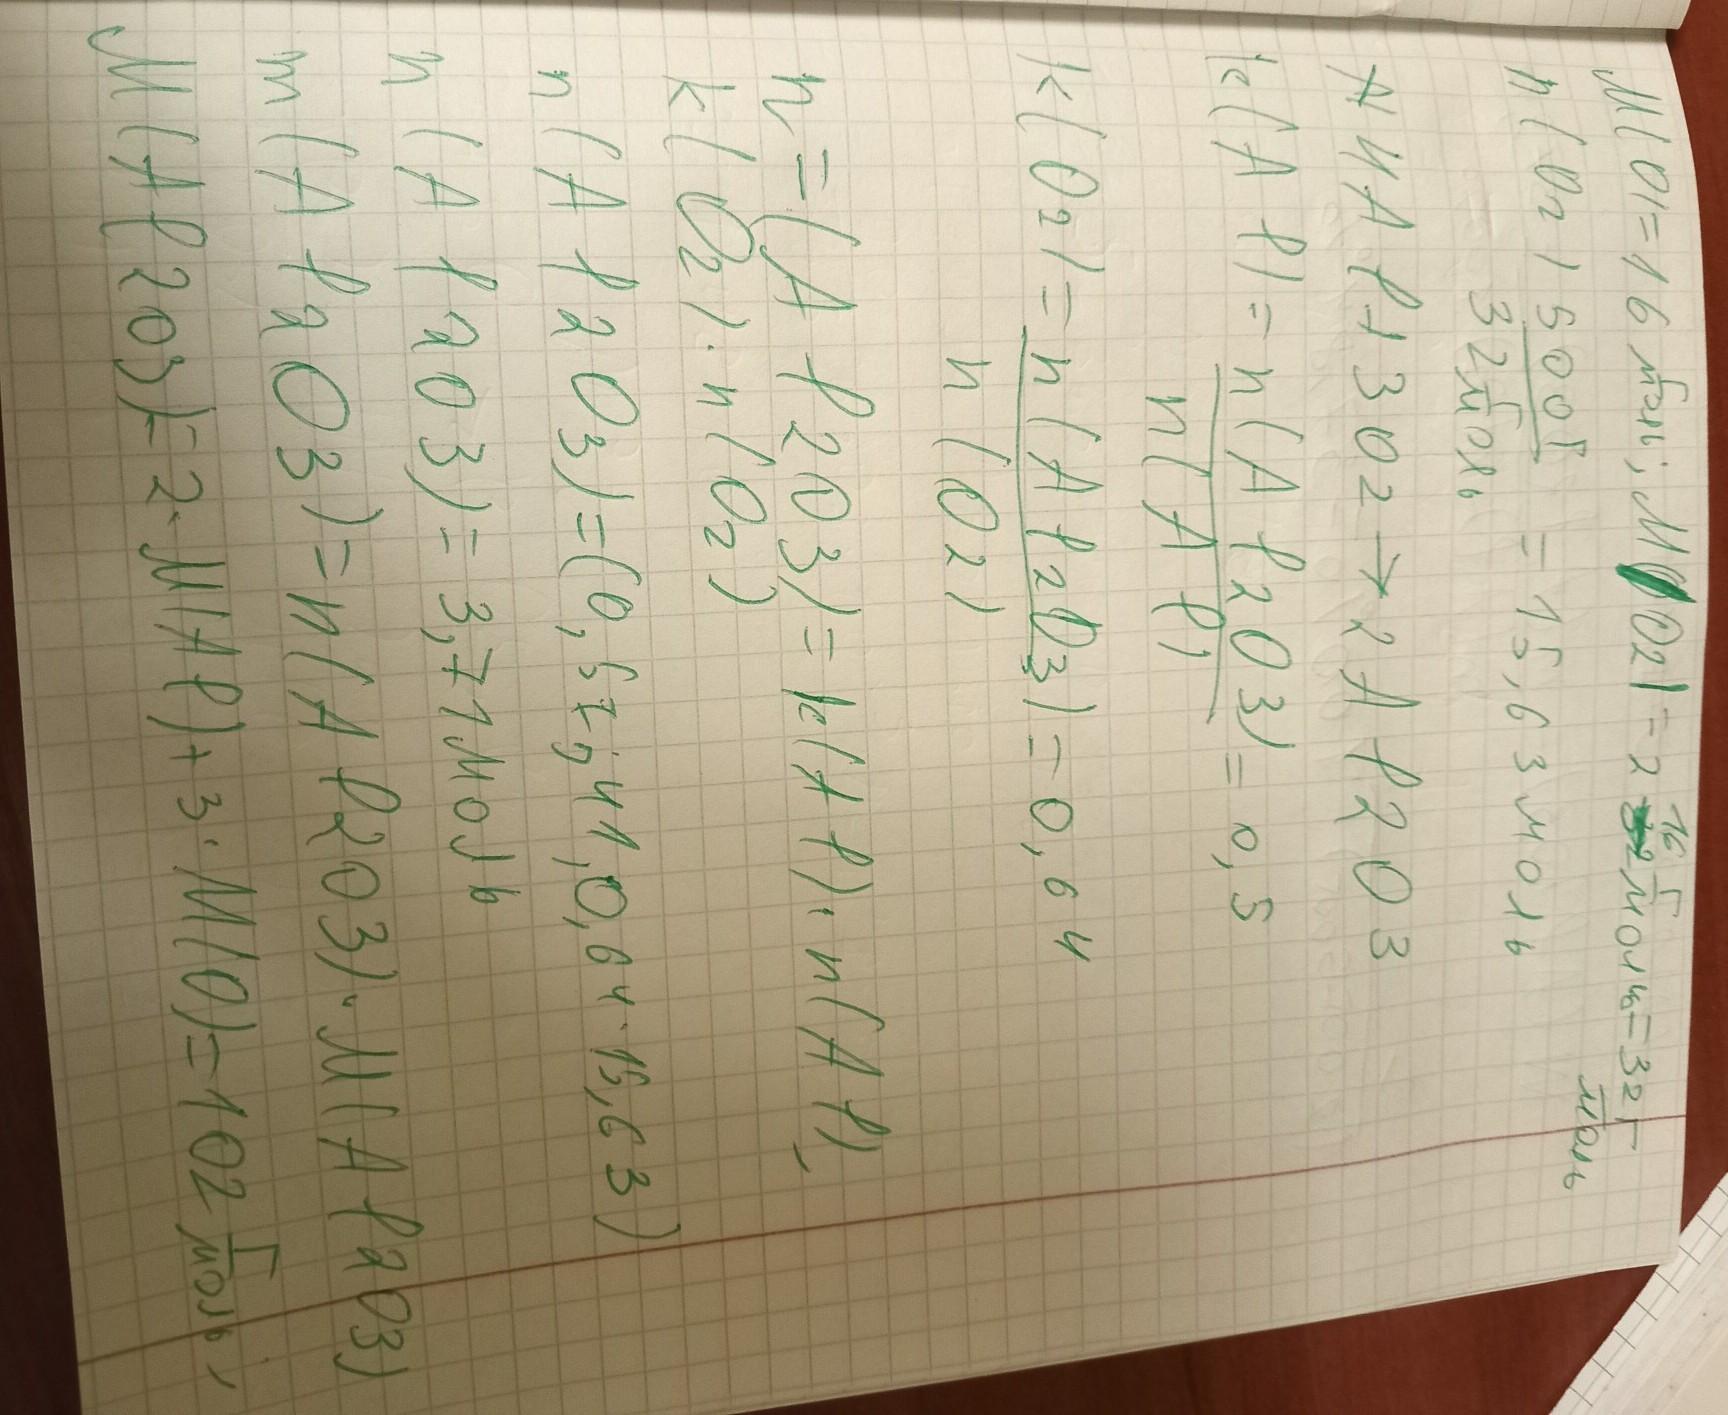 M(O)=16 г/моль; M(O2)=2·16 г/моль=32 г/моль
n(O2) 500г/32 г/моль = 15,63 моль
4Al+3O2→2Al2O3
k(Al)= n(Al2O3)/n(Al) = 0,5
k(O2)= n(Al2O3)/n(O2) = 0,64
n=(Al2O3)=k(Al)·n(Al),
k(O2)·n(O2)
n(Al2O3)=(0,5·7,41,0,64·15,63)
n(Al2O3)=3,71моль
m(Al2O3)=n(Al2O3)·M(Al2O3)
M(Al2O3)=2·M(Al)+3·M(O)=102 г/моль,